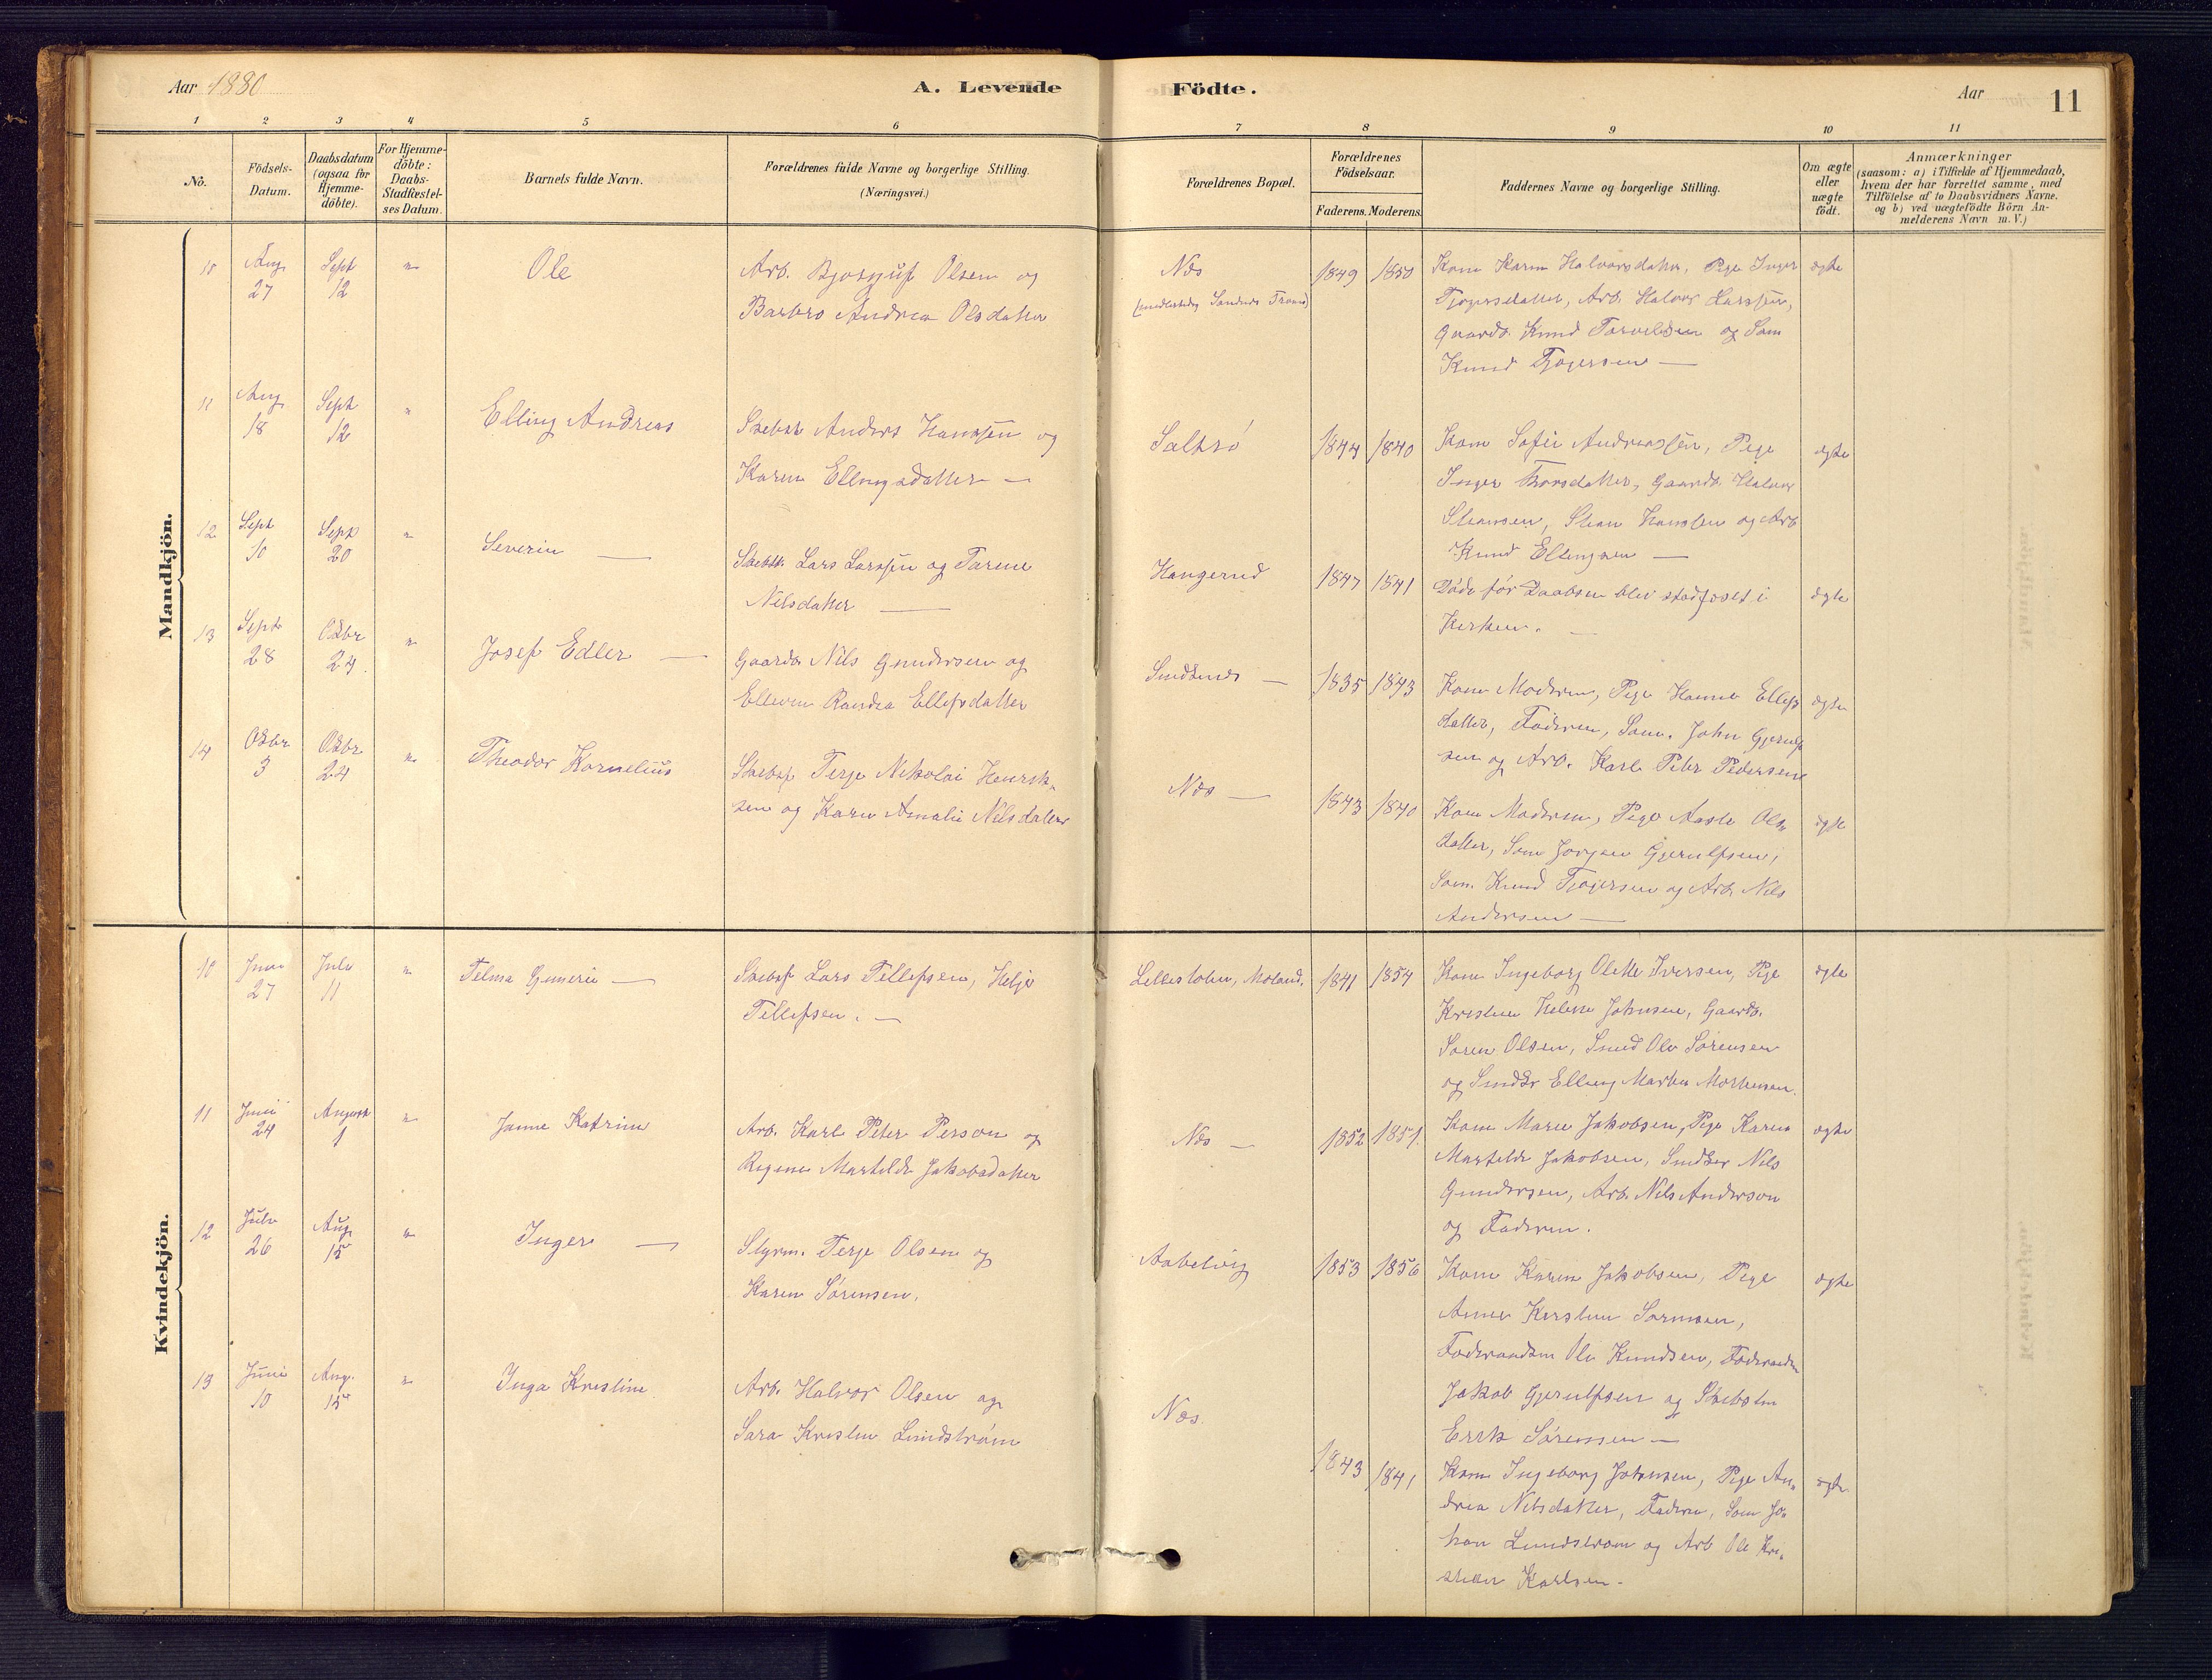 Aar 1880
A. Levende
Födte.
Aar
11
1
2
3
4
5
6
7
8
9
10
11
No.
Födsels-
Datum.
Daabsdatum
(ogsaa for
Hjemme-
döbte).
For Hjemme-
döbte:
Daabs-
Stadfæstel-
ses Datum.
Barnets fulde Navn.
Forældrenes fulde Navne og borgerlige Stilling.
(Næringsvei.)
Forældrenes Bopæl.
Forældrenes
Födselsaar.
Faderens. Moderens.
Faddernes Navne og borgerlige Stilling.
Om ægte
eller
uægte
födt.
Anmærkninger
(saasom: a) i Tilfælde af Hjemmedaab,
hvem der har forrettet samme, med
Tilföielse af to Daabsvidners Navne.
og b) ved uægtefödte Börn An-
melderens Navn m. V.)
Mandkjön.
10
Aug
27
Sept
12
"
Ole
Arb. Olsen og
Barbro Andrea Olsdatter
Næs
1849
1850
Kone Karen Halvorsdatter, Pige Inger
Arb. Halvor
Gaardb. Knud og Søm
Knud
ægte
11
Aug
18
Sept
12
"
Elling Andreas
Anders Hanssen og
Karen Ellingsdatter —
Saltrø
1844
1840
Kone Sofie Andreassen, Pige
Inger Gaardb. Halvor
Hanssen og Arb
Knud Ellingsen —
ægte
12
Sept
10
Sept
20
"
Severin —
Lars Larssen og Tarene
Nilsdatter —
Hangerud
1847
1841
Døde før Daaben blev stadfæstet i
Kirken. —
ægte
13
Sept
28
Oktbr
24
"
Josef Edler —
Gaardb. Nils Gundersen og
Ellevine Randea Ellefsdatter
—
1835
1843
Kone Moderen, Pige Hanne Ellefs
datter, Faderen, Søm. John Gjerulf
sen og Arb. Karl Peter Pedersen
ægte
14
Oktbr
3
Oktbr
24
"
Theodor Kornelius
Terje Nikolai Henrik
sen og Karen Amalie Nilsdatter
Næs —
1843
1840
Kone Moderen, Pige Aasle Ols
datter, Søm Jørgen Gjerulfsen,
Søm. Knud og Arb. Nils
Andersen —
ægte
Kvindekjön.
10
Juni
27
Juli
11
"
Telma Gunerie —
Lars Tellefsen, Helje
Tellefsen. —
Moland.
1841
1854
Kone Ingeborg Olette Iversen, Pige
Kristine Helene Johnsen, Gaardb.
Søren Olsen, Smed Ole Sørensen
og Elling Martin Mortensen.
ægte
11
Juni
24
August
1
"
Janne Katrine
Arb. Karl Peter Person og
Regine Matilde Jakobsdatter
Næs —
1852
1851
Kone Maren Jakobsen, Pige Karen
Matilde Jakobsen, Nils
Gundersen, Arb. Nils Anderson
og Faderen.
ægte
12
Juli
26
Aug
15
"
Inger —
Styrm. Terje Olsen og
Karen Sørensen.
Aabelvig
1853
1856
Kone Karen Jakobsen, Pige
Anne Kirstine Sørensen,
Ole Knudsen,
Jakob Gjerulfsen og
Erik Sørensen —
ægte
13
Juni
10
Aug.
15
"
Inga Kristine
Arb. Halvor Olsen og
Sara Kristine Lundstrøm
Næs
1843
1841
Kone Ingeborg Johnsen, Pige An
drea Nilsdatter, Faderen, Søm Jo
han Lundstrøm og Arb Ole Kri
stian Karlsen.
ægte